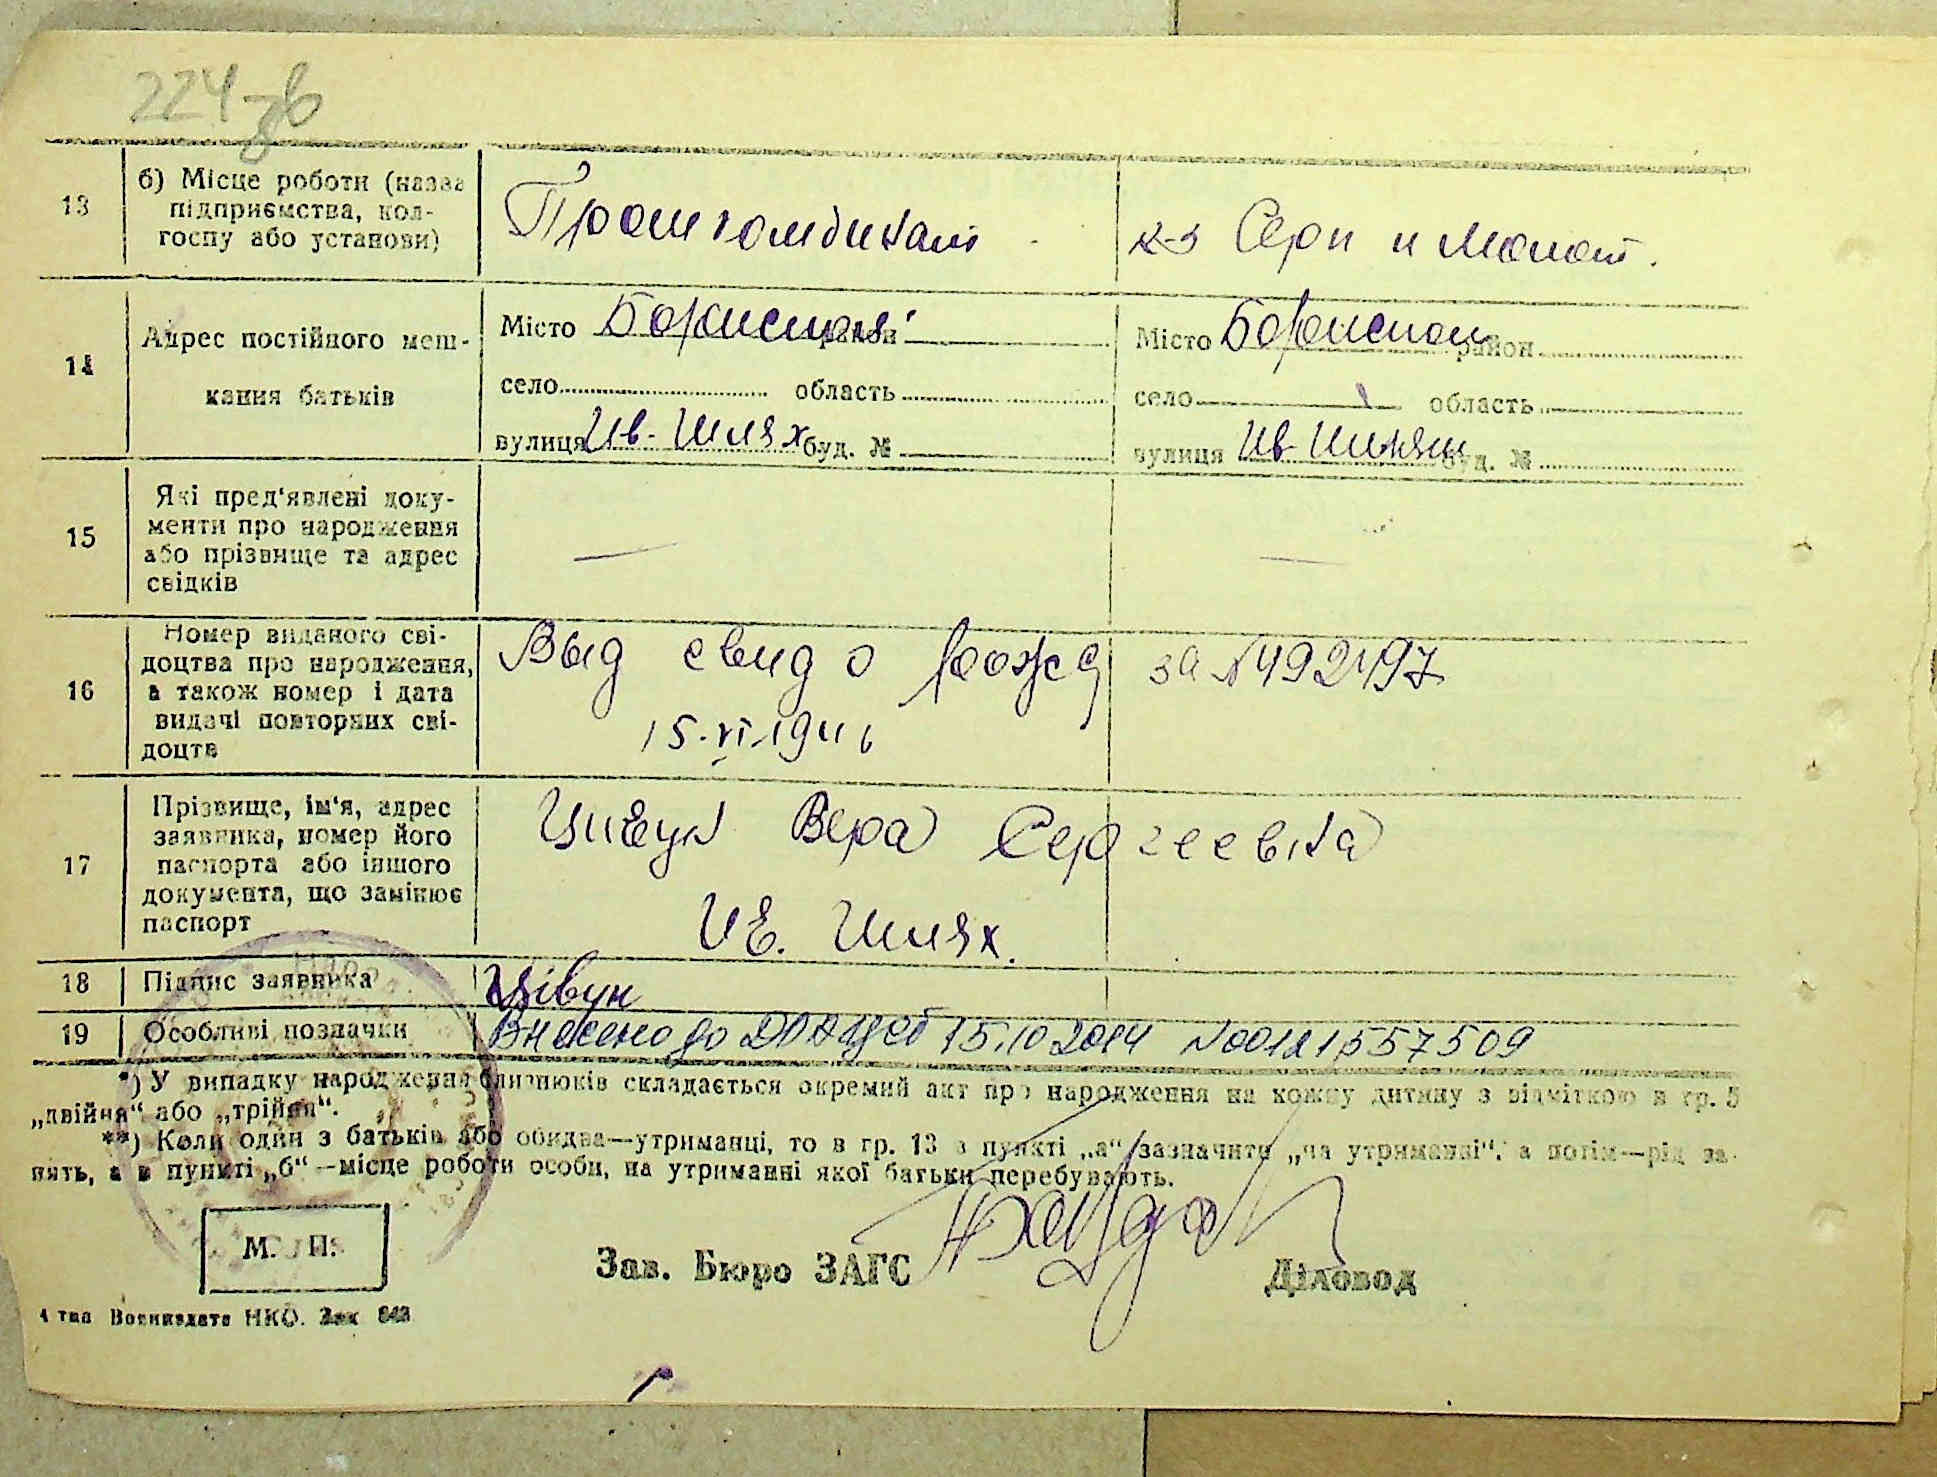 224 зв
13
б) Місце роботи (назва
підприємства, кол-
госпу або установи)
Промкомбинат
к-з Серп и Молот.
14
Адрес постійного меш-
кання батьків
Місто Борисполь район
село область
вулиця Ив. Шлях буд. №
Місто Борисполь район
село область
вулиця Ив Шлях буд. №
15
Які пред'явлені доку-
менти про народження
або прізвище та адрес
свідків
—
—
16
Номер виданого сві-
доцтва про народження,
а також номер і дата
видачі повторних сві-
доцтв
Выд свид о рожд за N492497
15.VI.1941
17
Прізвище, ім'я, адрес
заявника, номер його
паспорта або іншого
документа, що замінює
паспорт
Цивун Вера Сергеевна
Ив. Шлях.
18
Підпис заявника
Цівун
19
Особливі позначки
Внесено до 15.10.2014 N00121557509
*) У випадку народження близнюків складається окремий акт про народження на кожну дитину з відміткою в гр. 5
„двійня“ або „трійня“.
**) Коли один з батьків або обидва—утриманці, то в гр. 13 в пункті „а“ зазначити „на утриманні“, а потім—рід за-
нять, а в пункті „б“—місце роботи особи, на утриманні якої батьки перебувають.
М. П.
Зав. Бюро ЗАГС
Діловод
4 тип Воениздата НКО. Зак 643